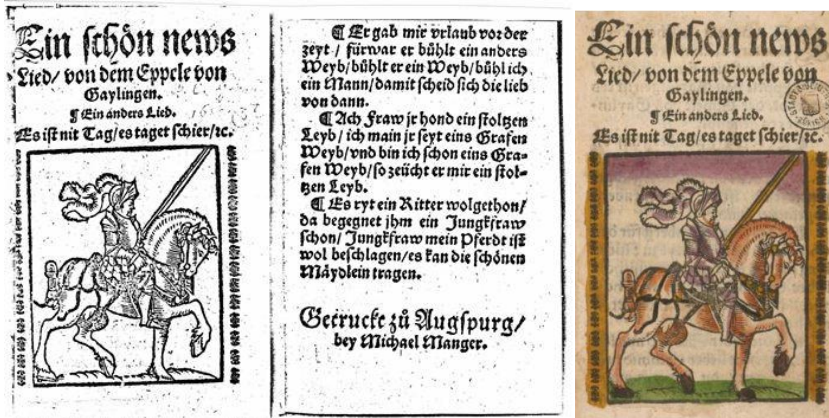 Ein schön news
Lied/ von dem Eppele von
Gaylingen.
¶ Ein anders Lied.
Es ist nit Tag/es taget schier/ꝛc.
¶ Er gab mir vrlaub vor der
zeyt / fürwar er bühlt ein anders
Weyb/bühlt er ein Weyb/bühl ich
ein Mann/damit scheid sich die lieb
von dann.
¶ Ach Fraw jr hond ein stoltzen
Leyb/ ich main jr seyt eins Grafen
Weyb/vnd bin ich schon eins Gra-
fen Weyb/so zeücht er mir ein stol-
tzen Leyb.
¶ Es ryt ein Ritter wolgethon/
da begegnet jhm ein Jungkfraw
schon/ Jungkfraw mein Pferdt ist
wol beschlagen/es kan die schönen
Mäydlein tragen.
Getruckt zů Augspurg/
bey Michael Manger.
Ein schön news
Lied/ von dem Eppele von
Gaylingen.
¶ Ein anders Lied.
Es ist nit Tag/es taget schier/ꝛc.